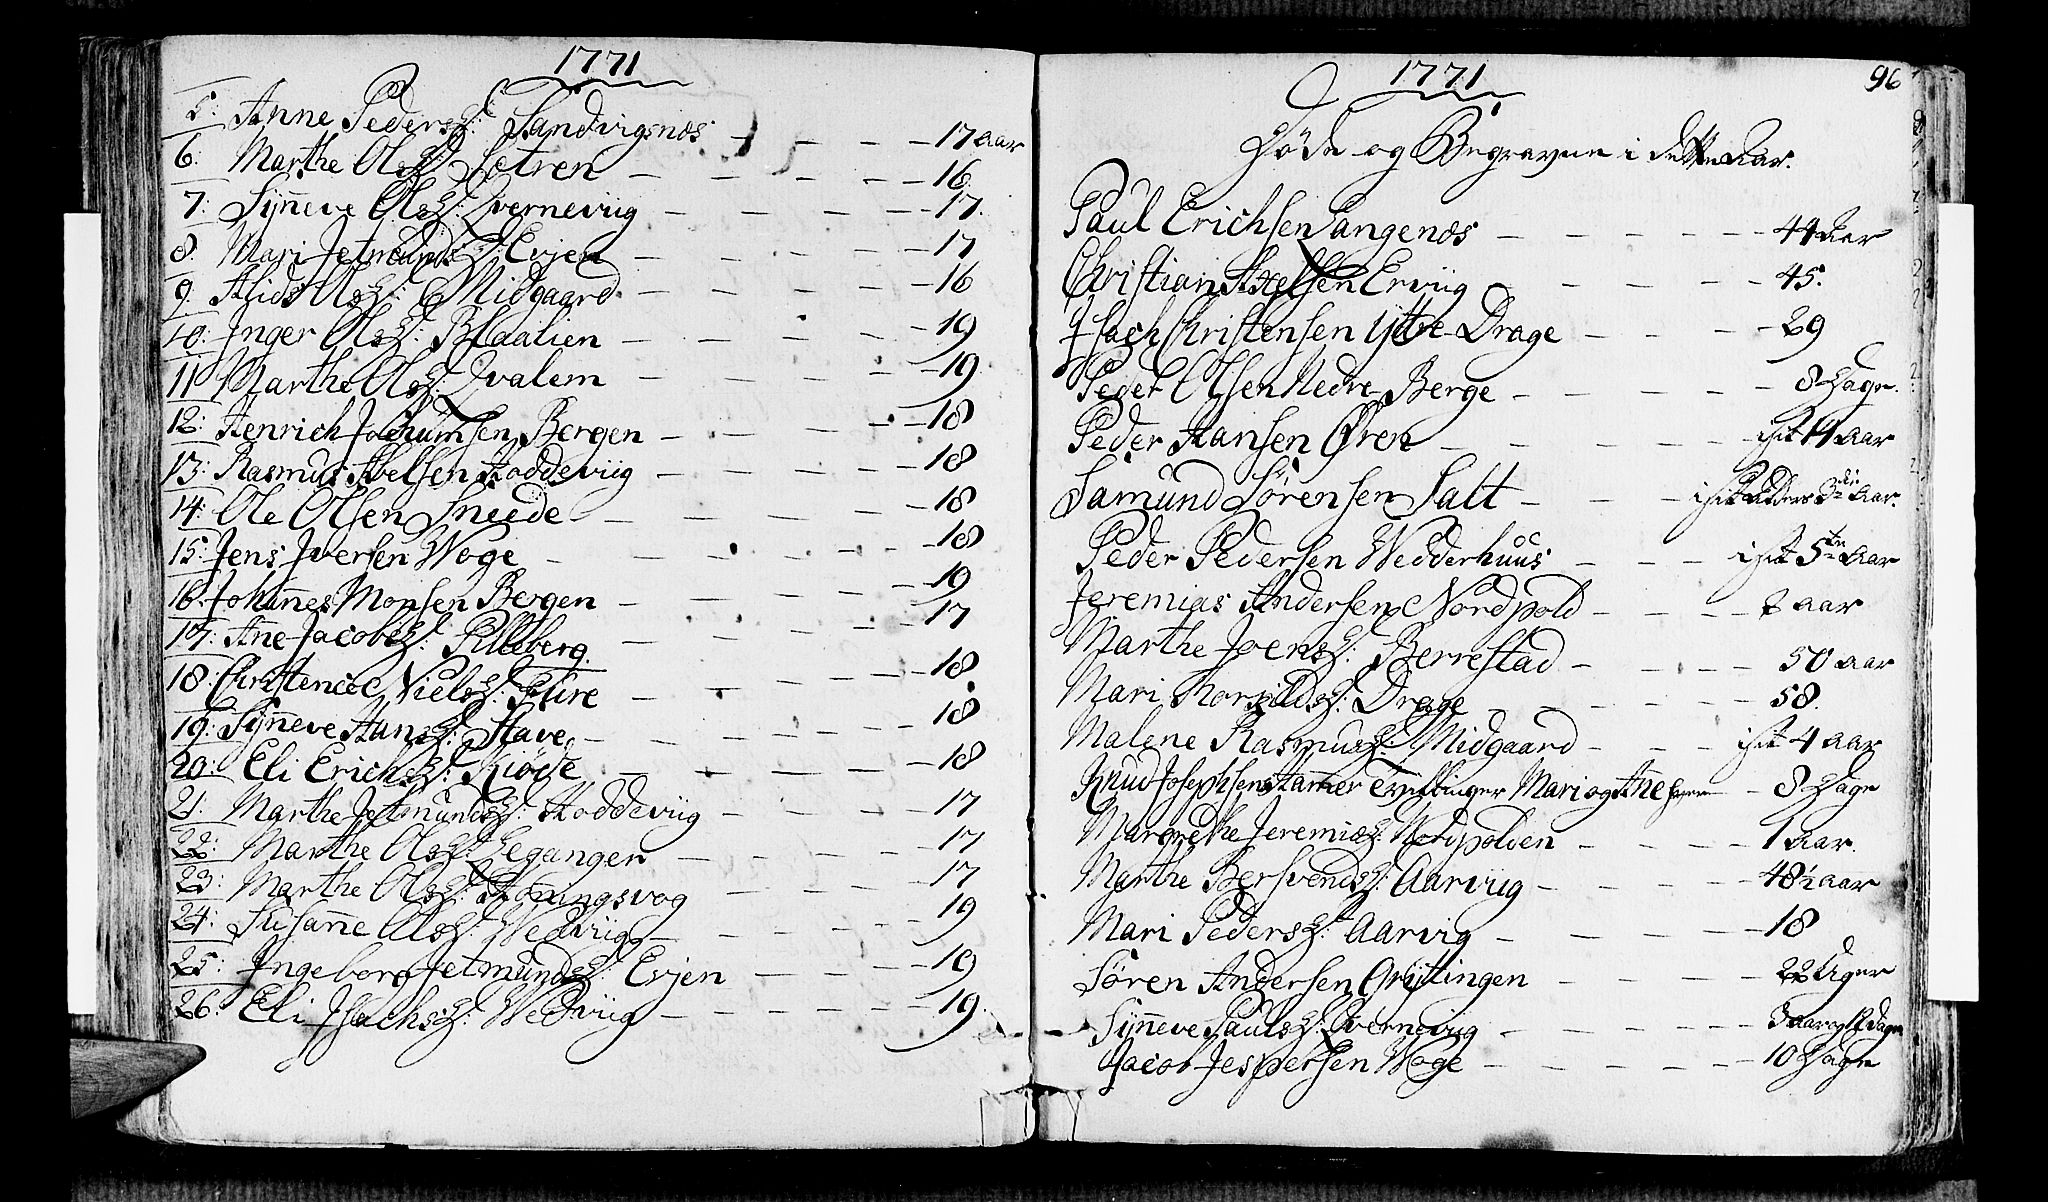 1771
5: Anne Peders D: Sandvigsnæs - - - 17 aar
6: Marthe Ols D: Sætren - - - 16
7: Sÿneve Ols D: Qvernevüg - - - 17.
8. Mari Jetmunds D: Ervjen - - - 17
9. Alids Ols D: Midgaard - - - 16
10: Inger Ols D: Blaalien - - - 19
11 Marthe Ols D: Qvalem - - - 19
12: Henrich Jochumsen Bergen - - - 18
13: Rasmus Abelsen Hoddevüg - - - 18
14: Ole Olsen Sneede - - - 18
15: Jens Iversen Woge - - - 18
16. Johannes Monsen Bergen - - - 19
17: Ane Jacobs D: Silleberg - - - 17
18: Christence Niels D: Flüre - - - 18
19: Sÿneve Hans D: Stave - - - 18
20: Eli Erichs D: Kiöde - - - 18
21. Marthe Jetmunds D: Hoddevüg - - - 17
22: Marthe Ols D: Legangen - - - 17
23: Marthe Ols D: Honingsvog - - - 17
24: Susanne Ols D: Wedvüg - - - 19
25: Ingeborg Jetmunds D: Ervjen - - - 19
26: Eli Isachs D: Wedvüg - - - 19.
1771
96
Döde og Begravne i dette Aar.
Paul Erichsen Langenæs - - - 44 Aar
Christian Axelsen Ervüg - - - 45.
Isach Christensen Ytre Drage - - - 29
Peder Olsen Nedre Berge - - - 8 Dage.
Peder Hansen Øren - - - i sit 4 Aar
Samund Sörensen Salt - - - i sit Alders 3die Aar.
Peder Pedersen Wedderhuus - - - i sit 5te Aar
Jeremias Andersen Nordpold - - - 2 aar
Marthe Joens D: Berrestad - - - 50 aar
Mari Torkilds D: Drage - - - 58.
Malene Rasmus D: Midgaard - - - i sit 4 aar
Knud Josephsen Hammer Tvillinger Mari og Anne - 8 Dage
Margrethe Jeremias D: Nordpolden - - - 1 Aar.
Marthe Bersvends D: Aarvüg - - - 48½ aar
Mari Peders D: Aarvig - - - 18
Sören Andersen Grÿtingen - - - 22 Uger
Sÿneve Pauls D: Qvernevüg - - - 3 aar og 12 dage
Jacob Jespersen Woge - - - 10 Dage